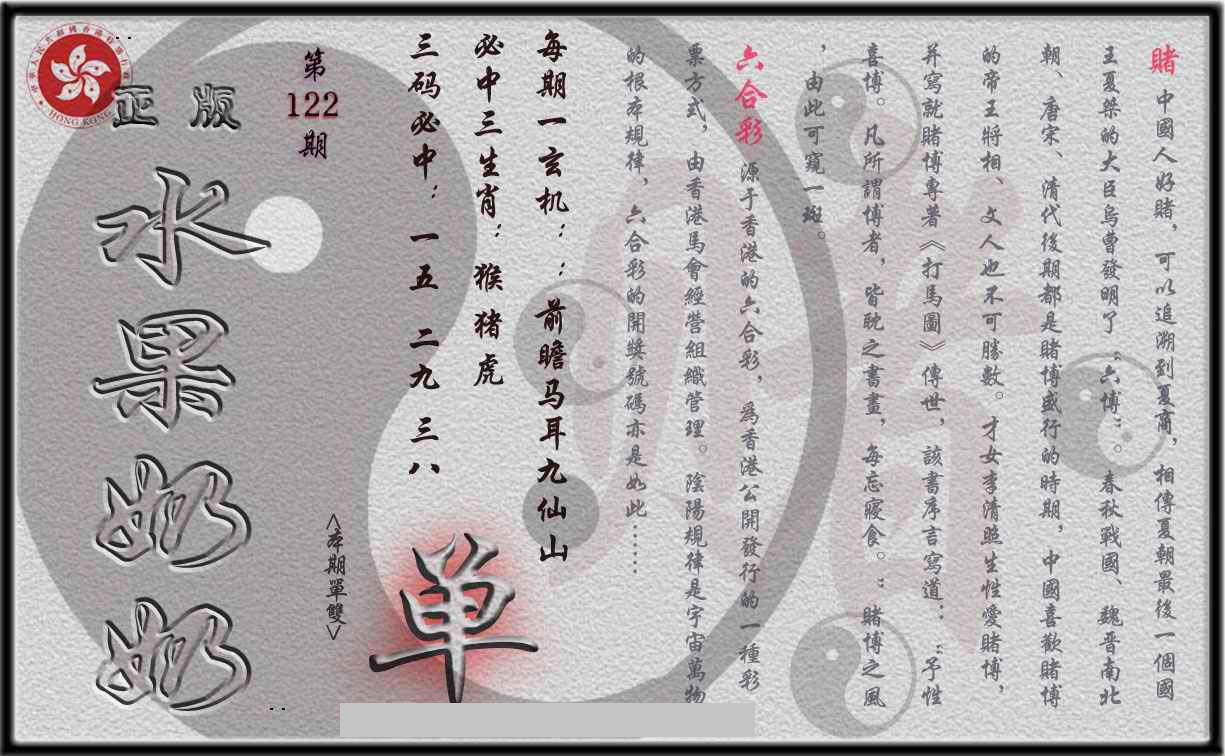 賭 中國人好賭，可以追溯到夏商，相傳夏朝最後一個國
王夏桀的大臣烏曹發明了“六博”。春秋戰國、魏晋南北
朝、唐宋、清代後期都是賭博盛行的時期，中國喜歡賭博
的帝王將相、文人也不可勝數。才女李清照生性愛賭博，
并寫就賭博專著《打馬圖》傳世，該書序言寫道：：“予性
喜博。凡所謂博者，皆耽之書畫，每忘寢食。”賭博之風
，由此可窺一斑。
六合彩 源于香港的六合彩，爲香港公開發行的一種彩
票方式，由香港馬會經營組織管理。陰陽規律是宇宙萬物
的根本規律，六合彩的開獎號碼亦是如此……
每期一玄机：：前瞻马耳九仙山
必中三生肖：猴猪虎
三码必中：一五 二九 三八
<本期單雙>
单
第
122
期
正版
水果奶奶
HONG KONG